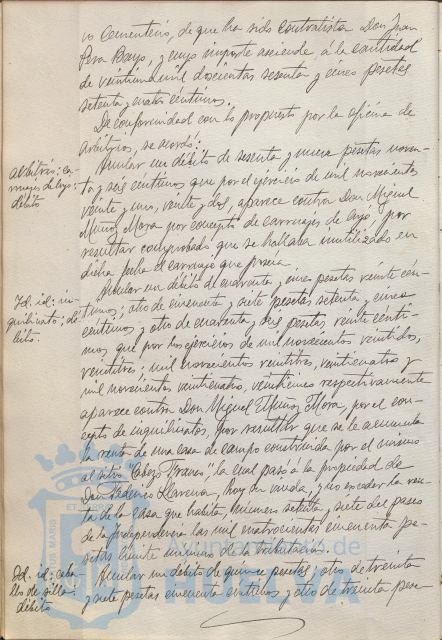 vo Cementerio, de que ha sido contratista Don Juan
Pera Bayo, y cuyo importe asciende á la cantidad
de veintiun mil doscientas sesenta y cinco pesetas
setenta y cuatro céntimos.
De conformidad con lo propuesto por la oficina de
arbitrios, se acordó:
Arbitrios: ca-
rruajes de lujo:
débito
Anular un débito de sesenta y nueve pesetas noven-
ta y seis céntimos que por el ejercicio de mil novecientos
veinte y uno, veinte y dos, aparece contra Don Miguel
Muñoz Mora por concepto de carruajes de lujo, y por
resultar comprobado que se hallaba inutilizado en
dicha fecha el carruaje que poseia.
Id. id: in-
quilinato: dé-
bito:
Anular un débito de cuarenta y cinco pesetas veinte cén-
timos; otro de cincuenta y siete pesetas setenta y cinco
céntimos y otro de cuarenta y seis pesetas, veinte cénti-
mos, que por los ejercicios de mil novecientos veintidos,
veintitres; mil novecientos veintitres, veinticuatro y
mil novecientos veinticuatro, veinticinco respectivamente
aparece contra Don Miguel Muñoz Mora, por el con-
cepto de inquilinatos, por resultar que se le acumula
la renta de una casa de campo construida por el mismo
al sitio "Cabezo Franco" la cual pasó a la propiedad de
Don Federico Llarena, hoy su viuda, y no exceder la ren-
ta de la casa que habita, número setenta y siete del paseo
de la Independencia las mil cuatrocientas cincuenta pe-
setas límite mínimo de la tributación.
Id. id: caba-
llos de silla:
débito
Anular un débito de quince pesetas, otro de treinta
y siete pesetas cincuenta céntimos y otro de treinta pese-
Ayuntamiento de
HUELVA